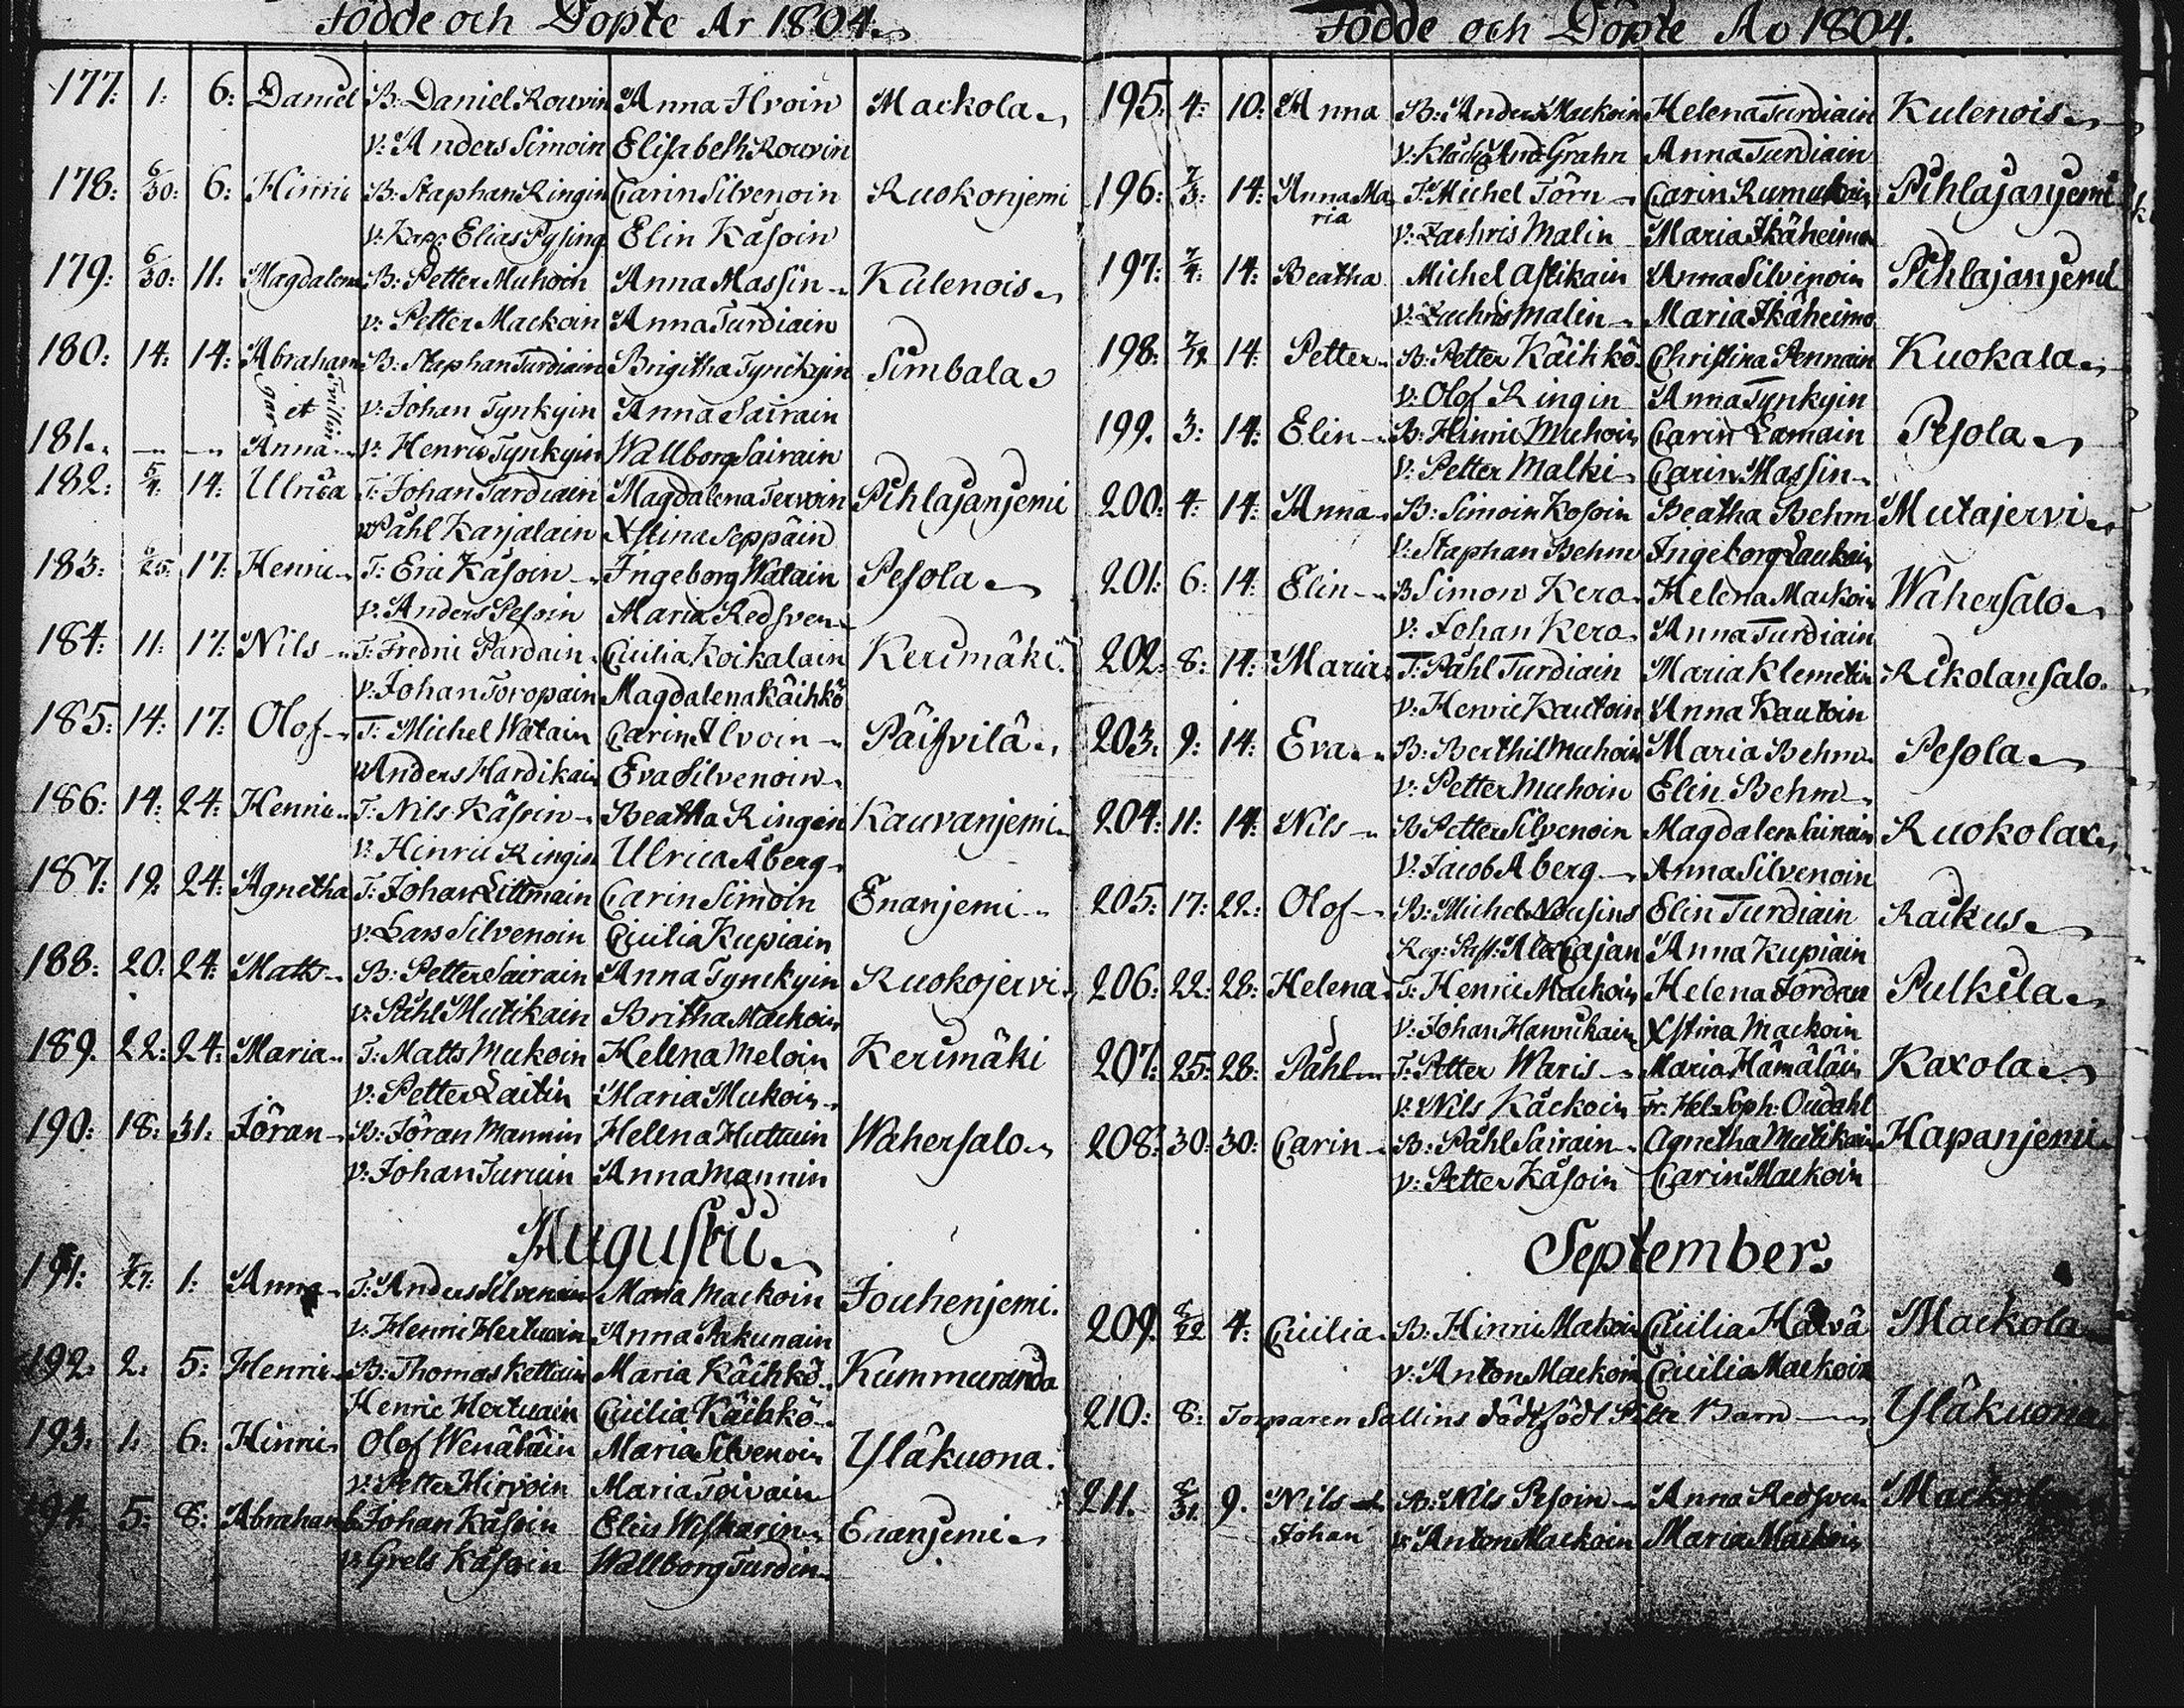 Födde och Döpte År 1804.
177: 1: 6: Daniel B: Daniel Rouvin Anna Hvoin Mackola
v: Anders Simoin Elisabeth Rouvin
178: 6/30: 6: Hinric B: Staphan Ringin Carin Silvenoin Ruokonjemi
v: Kap: Elias Pysing Elin Kåsoin
179: 6/30: 11: Magdalena B: Petter Muhoin Anna Massin Kulenois
v: Petter Mackoin Anna Turdiain
180: 14: 14: Abraham B: Staphan Turdiain Brigitha Tynckyin Simbala
et Tvillingar v: Johan Tynkyin Anna Sairain
181. Anna v: Henric Tynkyin Wallborg Sairain
182: 5/4: 14: Ulrica T: Johan Pardiain Magdalena Tervoin Pihlajanjemi
v: Påhl Karjalain Xstina Seppäin
183: 6/25: 17: Henric T: Eric Kåsoin Ingeborg Watain Pesola
v: Anders Pesoin Maria Redsven
184: 11: 17: Nils T: Fredric Pardain Cicilia Koikalain Kerimäki
v: Johan Toropain Magdalena Käihkö
185: 14: 17: Olof T: Michel Watain Carin Ilvoin Päisvilä
v: Anders Hardikain Eva Silvenoin
186: 14: 24: Henric T: Nils Kåsoin Beatha Ringin Kauvanjemi
v: Hinric Ringin Ulrica Åberg
187: 19: 24: Agnetha T: Johan Littmain Carin Simoin Enanjemi
v: Lars Silvenoin Cicilia Kupiain
188: 20: 24: Matts B: Petter Sairain Anna Tynckyin Ruokojervi
v: Påhl Mutikain Britha Mackoin
189. 22: 24: Maria T: Matts Muckoin Helena Meloin Kerimäki
v: Petter Laitin Maria Mukoin
190: 18: 31: Jöran B: Jöran Mannin Helena Huttuin Wahersalo
v: Johan Turuin Anna Mannin
Augusti
191: 7/27: 1: Anna T: Anders Silvenoin Maria Mackoin Jouhenjemi.
v: Henric Hertuain Anna Pakunain
192: 2: 5: Henric B: Thomas Kettuin Maria Käihkö Kummuranda
Henric Hertuain Cicilia Käihkö
193: 1: 6: Hinric Olof Wenäläin Maria Silvenoin Yläkuona.
v: Petter Hirvoin Maria Toivain
194: 5: 8: Abraham Johan Kåsoin Elin Wiskarin Enanjemi
v: Grels Kåsoin Wallborg Turdin
Födde och Döpte Ao 1804.
195: 4: 10: Anna B: Anders Muckoin Helena Turdiain Kulenois
v: Klåck: And: Grahn Anna Turdiain
196: 7/3: 14: Anna Maria T: Michel Törn Carin Rumukain Pihlajanjemi
v: Zachris Malin Maria Ikäheimo
197: 7/4: 14: Beatha Michel Astikain Anna Silvenoin Pihlajanjemi
v: Zachris Malin Maria Ikäheimo
198: 7/12 14: Petter B: Petter Käihkö Christina Pennain Kuokala
v: Olof Ringin Anna Tynkyin
199. 3: 14: Elin B: Hinric Muhoin Carin Lamain Pesola
v: Petter Malki Carin Massin
200: 4: 14: Anna B: Simoin Kosoin Beatha Behm Mutajervi
v: Staphan Behm Ingeborg Laukain
201: 6: 14: Elin B Simon Kero Helena Mackoin Wahersalo
v: Johan Kero Anna Turdiain
202: 8: 14: Maria T: Påhl Turdiain Maria Klemetin Rikolansalo.
v: Henric Kautoin Anna Kautoin
203: 9: 14: Eva B: Berthil Muhoin Maria Behm Pesola
v: Petter Muhoin Elin Behm
204: 11: 14: Nils B Petter Silvenoin Magdalena Sairain Ruokolax
v: Jacob Åberg Anna Silvenoin
205: 17: 22: Olof B: Michel Nousins Elin Turdiain Raikus
Reg: Past: Alex Cajan Anna Kupiain
206: 22: 28: Helena T: Henric Mackoin Helena Jordan Pulkila
v: Johan Hannikain Xstina Mackoin
207: 25: 28: Påhl T: Petter Waris Maria Hämäläin Kaxola
v: Nils Käckoin Fr: Hel: Soph: Oudahl
208: 30: 30: Carin B: Påhl Sairain Agnetha Mutikain Hapanjemi
v: Petter Kåsoin Carin Mackoin
September
209. 8/22 4: Cicilia B: Hinric Mahoin Cicilia Mackola
v: Anton Mackoin Cicilia Mackoin
210: 8: Torparen Sallins dödfödt Barn Yläkuona
211. 8/31. 9. Nils Johan B: Nils Pesoin Anna Redsven Mackola
v: Anton Mackoin Maria Mackoin